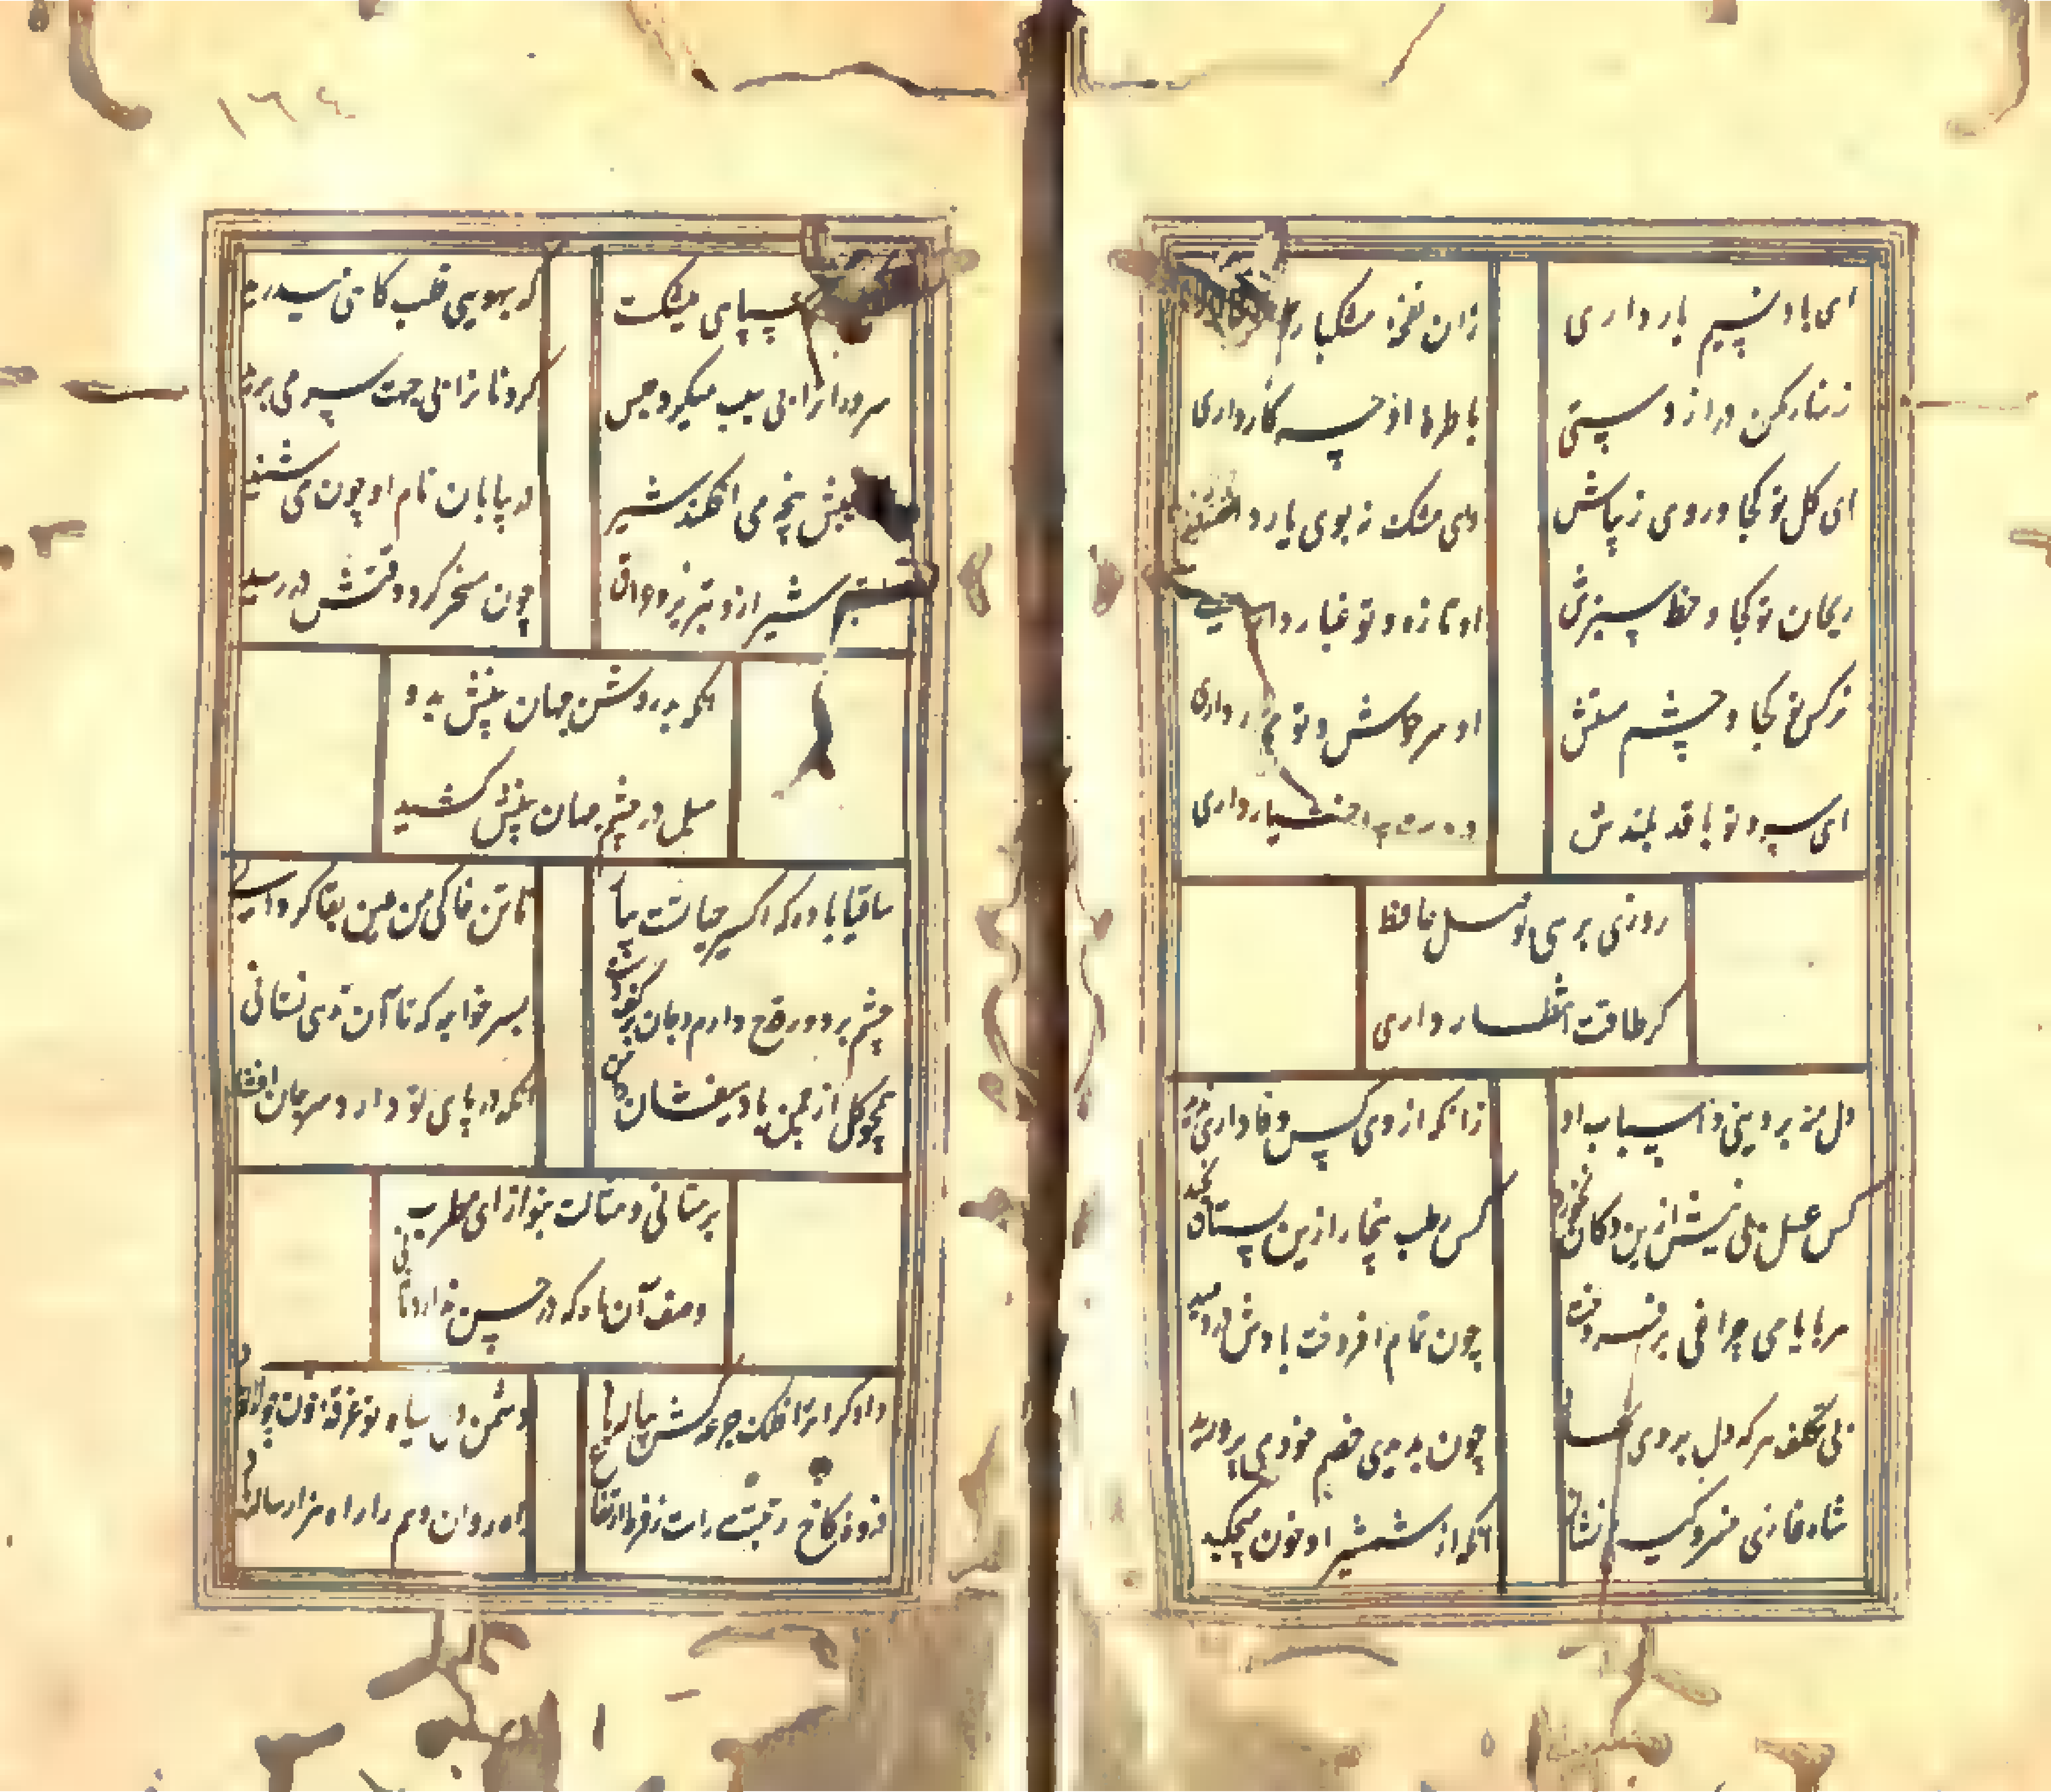 ١٦٤
ای باد نسیم یار داری
زان نفخهٔ مشکبار
زنهار مکن دراز دستی
با طرهٔ او چه کار داری
ای کل تو کجا و روی زیباش
وی مشک ز بوی یار
ریحان تو کجا و خط سبزش
او تازه و تو غبار داری
نرکس تو کجا و چشم مستش
او سرخوش و تو داری
ای سرو تو با قد بلندش
اختیار داری
روزی برسی بوصل حافظ
کر طاقت انتظار داری
دل منه بر دنیی و اسباب او
زانکه از وی کس وفاداری ندید
کس عسل بی نیش ازین دکان نخورد
کس رطب بیخار ازین بستان نچید
هر بایامی چراغی بر فروخت
چون تمام افروخت بادش در دمید
بی تکلف هر که دل بر وی نهاد
چون بدیدی خصم خود می پرورید
شاه غازی خسرو کیتی ستان
آنکه از شمشیر او خون میچکید
سپاهی میشکست
که بهویی قلب کاهی میدرید
سروران را بی سبب میکرد حبس
کردنان را بی جهت سر می برید
پنجه می افکند شیر
در بیابان نام او چون می شنید
شیراز و تبریز و عراق
چون مسخر کرد وقتش در رسید
آنکه بد روشن جهان بینش بدو
میل در چشم جهان بینش کشید
ساقیا باده که اکسیر حیاتست بیار
تا تن خاکی من عین بقا کردانی
چشم بر دور قدح دارم و جان بر کف دست
بسر خواجه که تا آن ندهی نستانی
همچو کل از چمن باد میفشان دامن
آنکه در پای تو دارد سر جان افشانی
بر مثانی و مثالث بنواز ای مطرب
وصف آن ماه که در حسن ندارد ثانی
دادکرا ترا فلک جرعه کش پیاله باد
دشمن دل سیاه تو غرقه بخون چو لاله باد
ذروهٔ کاخ رتبتت راست ز فرط ارتفاع
راه روان وهم را راه هزار ساله باد